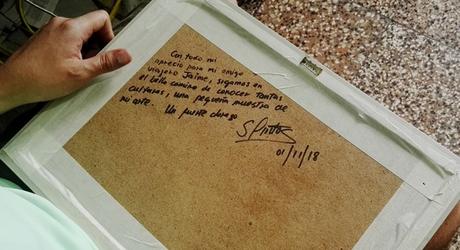 Con todo mi
aprecio para mi amigo
viajero Jaime, sigamos en
el bello camino de conocer tantas
culturas, una pequeña muestra de
mi arte. Un fuerte abrazo
01/11/18